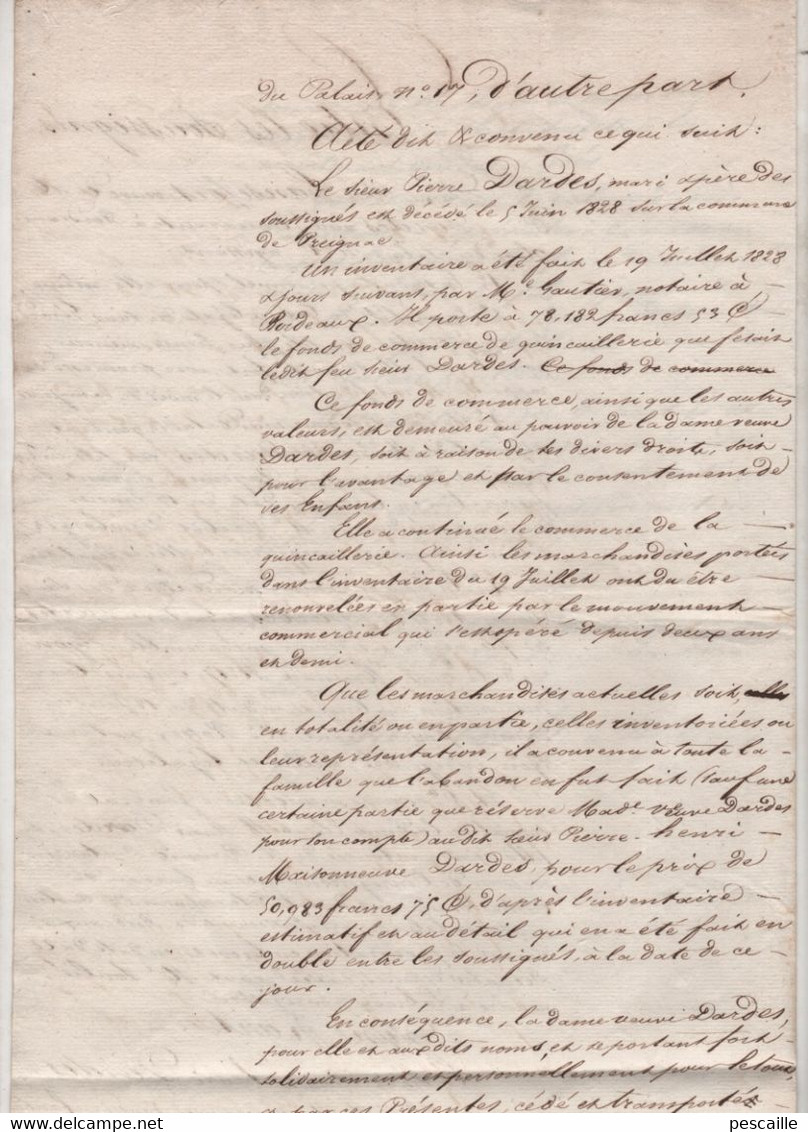 du Palais n° 17, d'autre part.
A été dit & convenu ce qui suit:
Le sieur Pierre Dardes, mari & père des
soussignés est décédé le 5 Juin 1828 sur la commune
de Preignac
Un inventaire a été fait le 19 Juillet 1828
& jours suivant, par Me. Gautier, notaire à
Bordeaux. Il porte à 78,182 francs 53 C
le fonds de commerce de quincaillerie que fesait
ledit feu sieur Dardes. Ce fonds de commerce
Ce fonds de commerce, ainsi que les autres
valeurs, est demeuré au pouvoir de la dame veuve
Dardes, soit à raison de ses divers droits, soit
pour l'avantage et par le consentement de
ses Enfans.
Elle a continué le commerce de la
quincaillerie. Ainsi les marchandises portées
dans l'inventaire du 19 Juillet ont du être
renouvelées en partie par le mouvement
commercial qui s'est opéré depuis deux ans
et demi.
Que les marchandises actuelles soit,
en totalité ou en partie, celles inventoriées ou
leur représentation, il a convenu à toute la
famille que l'abandon en fut fait (sauf une
certaine partie que réserve Made. veuve Dardes
pour son compte) audit sieur Pierre-henri
Maisonneuve Dardes, pour le prix de
50,983 francs 75 C, d'après l'inventaire
estimatif et au détail qui en a été fait en
double entre les soussignés, à la date de ce
jour.
En conséquence, la dame veuve Dardes,
pour elle et auxdits noms, et se portant fort
solidairement et personnellement pour le tout,
a par ces Présentes, cédé et transporté
pescaille